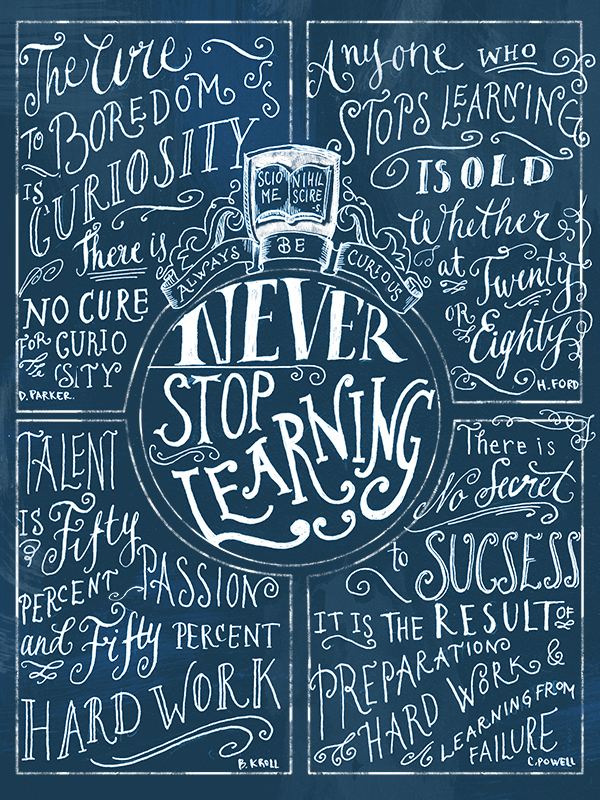 The Cure
TO BOREDOM
IS
CURIOSITY
There is
NO CURE
FOR CURIO
SITY
D. PARKER.
Anyone WHO
STOPS LEARNING
IS OLD
Whether
at Twenty
OR
Eighty
H. FORD
SCIO
ME
NIHIL
SCIRE
S.
ALWAYS BE CURIOUS
NEVER
STOP
LEARNING
TALENT
IS Fifty
PERCENT PASSION
and Fifty PERCENT
HARD WORK
B. KROLL
There is
No Secret
to SUCSESS
IT IS THE RESULT OF
PREPARATION
HARD WORK &
LEARNING FROM
FAILURE
C. POWELL